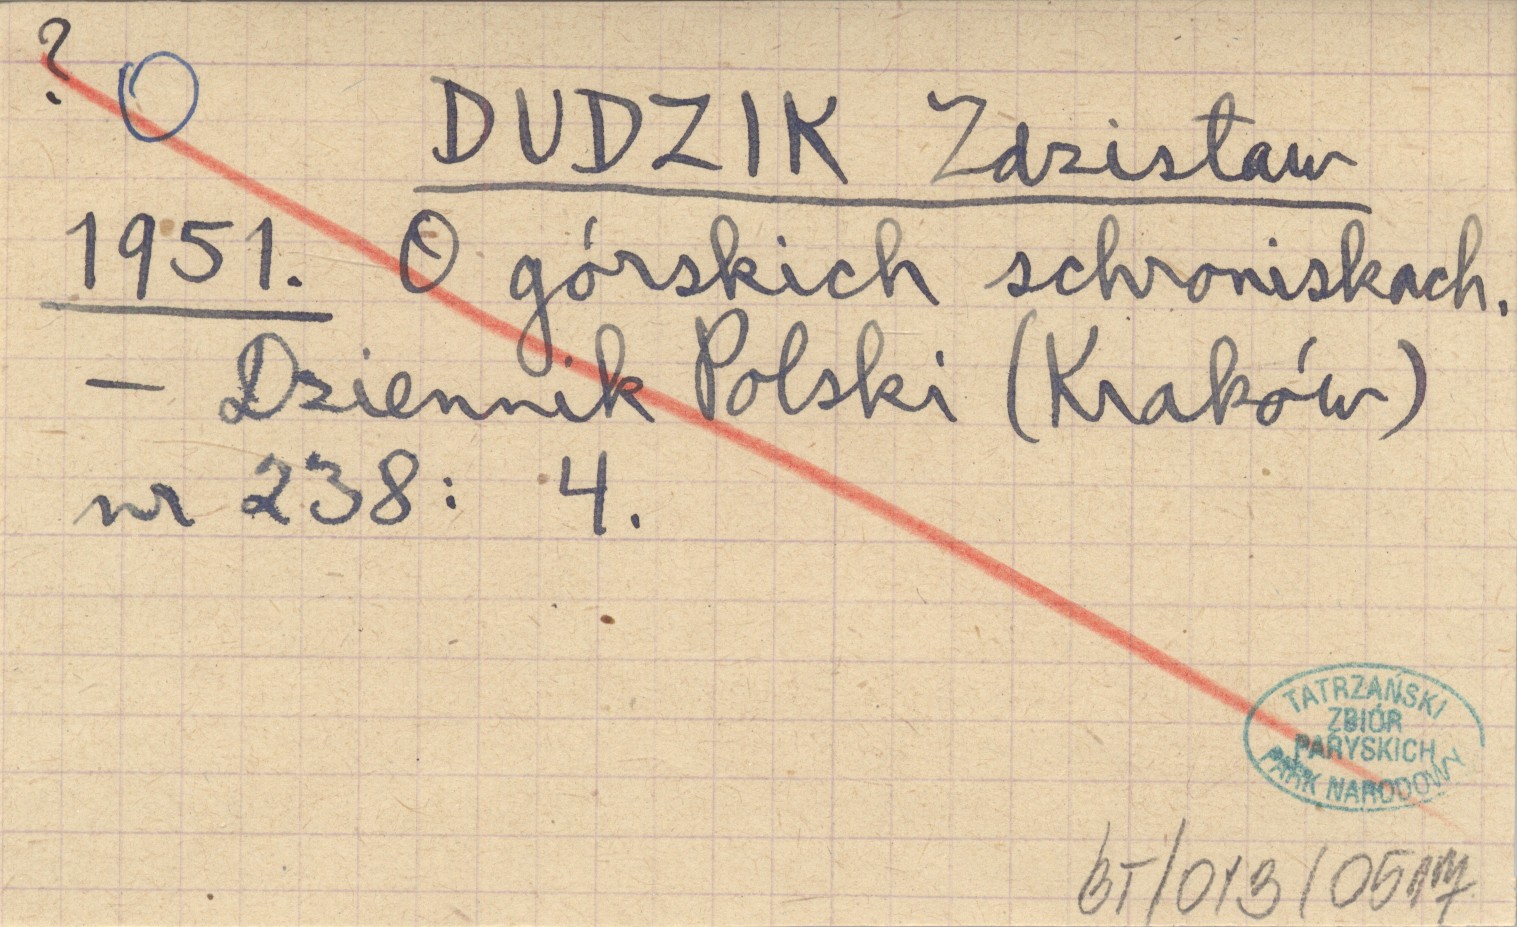 ?
DUDZIK Zdzisław
1951. O górskich schroniskach.
— Dziennik Polski (Kraków)
nr 238: 4.
TATRZAŃSKI
ZBIÓR
PARYSKICH
PARK NARODOWY
BT/013/